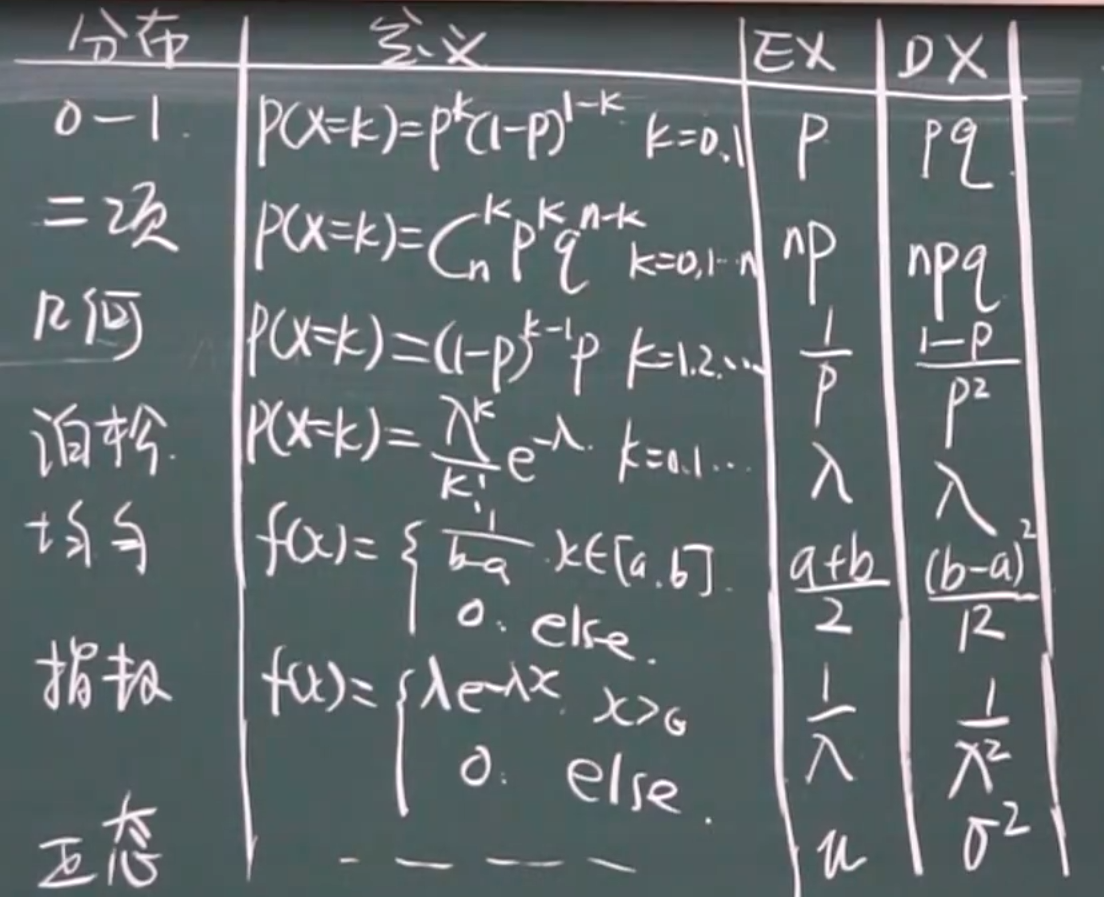 分布 定义 EX DX
0-1. P(X=k)=p^k(1-p)^{1-k} k=0,1 p pq
二项 P(X=k)=C_n^k p^k q^{n-k} k=0,1…n np npq
几何 P(X=k)=(1-p)^{k-1}p k=1.2.… 1/p (1-p)/p^2
泊松. P(X=k)=λ^k/k! e^{-λ}. k=0.1… λ λ
均匀 f(x)={ 1/(b-a) . x∈[a,b]. (a+b)/2 (b-a)^2/12
0. else.
指数 f(x)={ λe^{-λx}. x>0 1/λ 1/λ^2
0. else.
正态 ---- μ σ^2